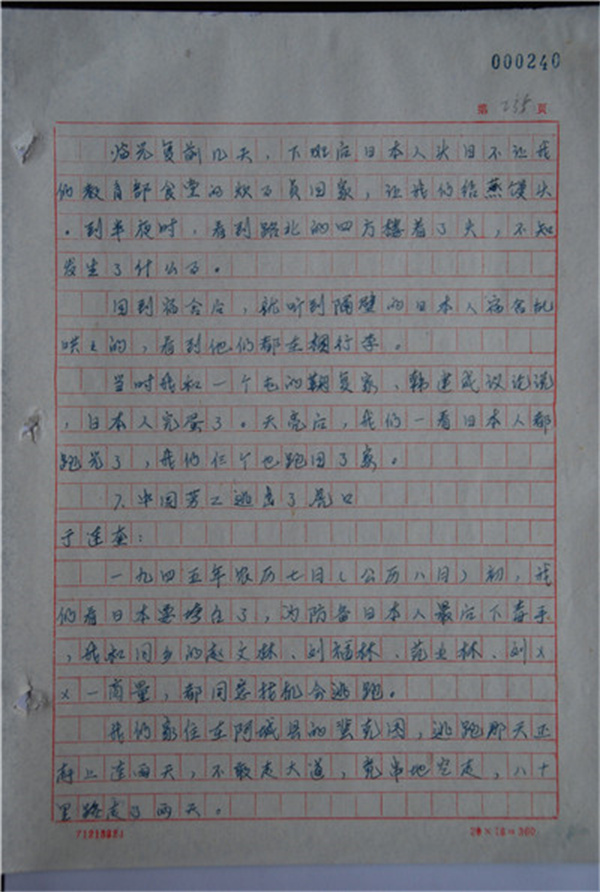 000240
第255页
临光复前几天，下班后日本人头目不让我
们教育部食堂的炊事员回家，让我们给蒸馍头
。到半夜时，看到路北的四方楼着了火，不知
发生了什么事。
回到宿舍后，就听到隔壁的日本人宿舍乱
哄哄的，看到他们都在捆行李。
当时我和一个屯的靳复家、韩建成议论说
，日本人完蛋了。天亮后，我们一看日本人都
跑光了，我们仨个也跑回了家。
7.中国劳工逃出了虎口
于连奎：
一九四五年农历七月（公历八月）初，我
们看日本要垮台了，为防备日本人最后下毒手
，我和同乡的赵文林、刘福林、范业林、刘×
×一商量，都同意找机会逃跑。
我们家住在阿城县的，逃跑那天正
赶上连雨天，不敢走大道，竟串地空走，八十
里路走了两天。
20×18=360